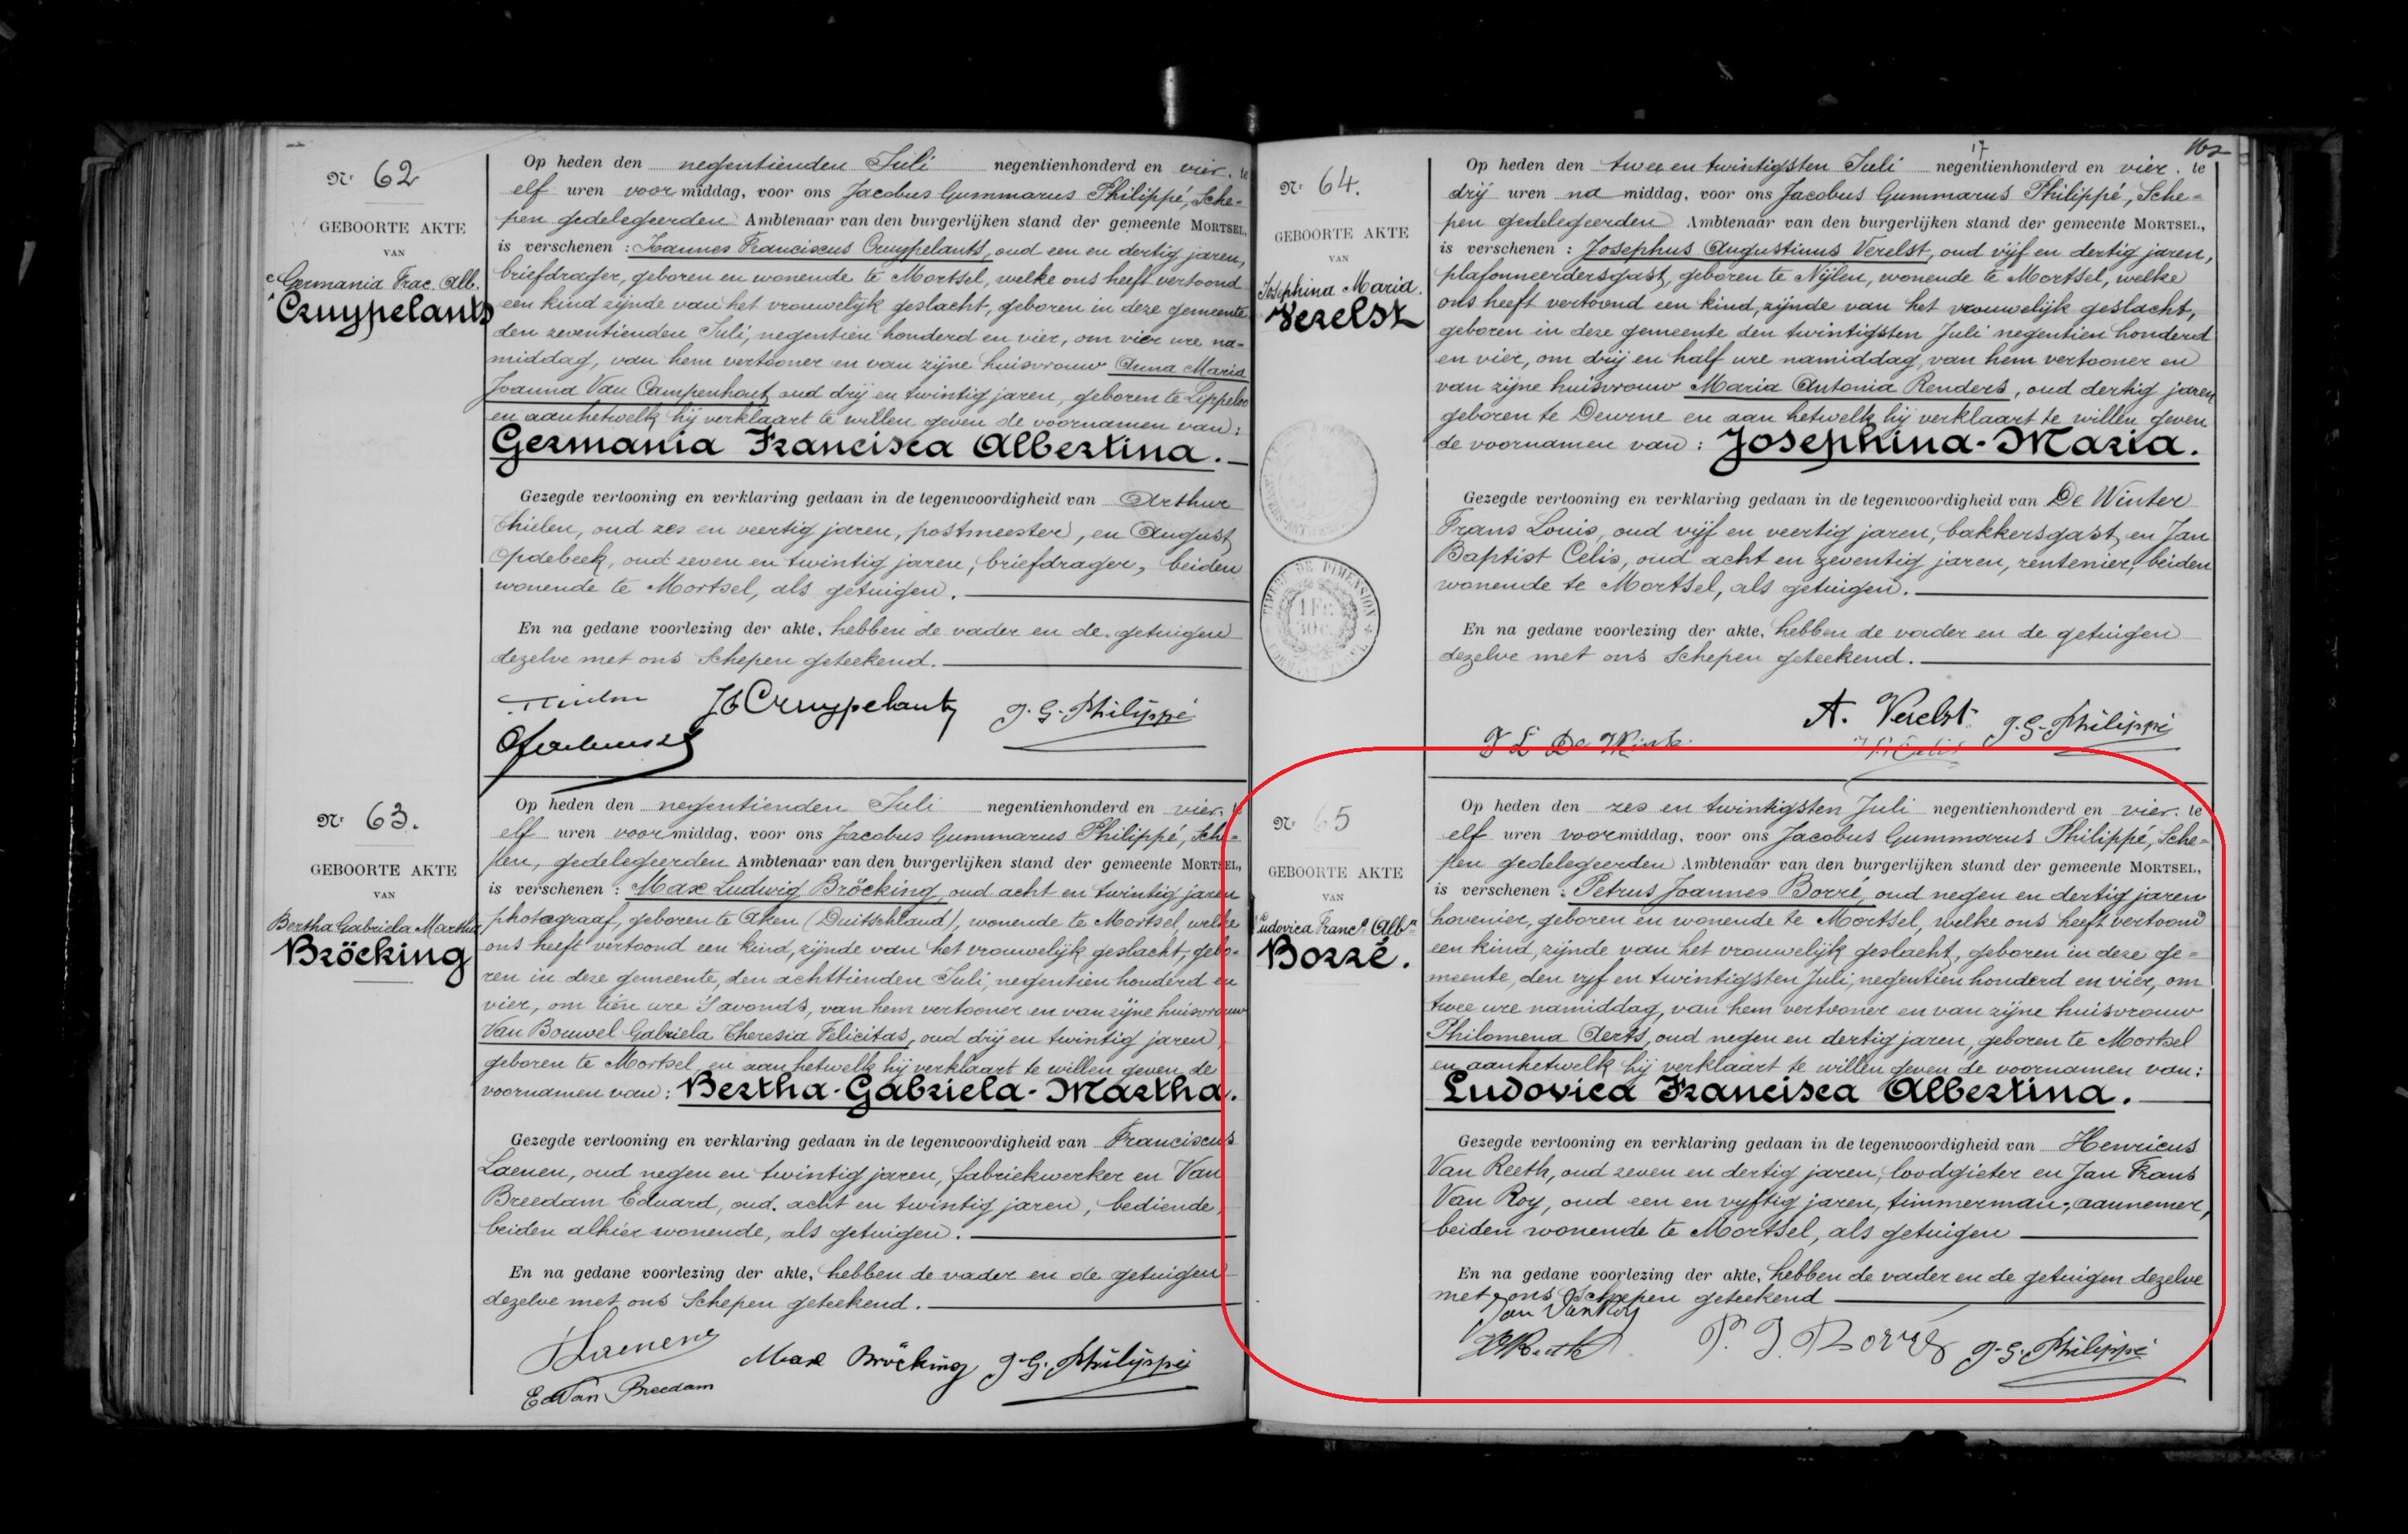 Nr 62
GEBOORTE AKTE
VAN
Germania Frac. Alb.
Cruypelants
Op heden den negentienden Juli negentienhonderd en vier, te
elf uren voor middag, voor ons Jacobus Gummarus Philippé, Sche=
pen gedelegeerden Ambtenaar van den burgerlijken stand der gemeente MORTSEL,
is verschenen : Joannes Franciscus Cruypelants, oud een en dertig jaren,
briefdrager, geboren en wonende te Mortsel, welke ons heeft vertoond
een kind zijnde van het vrouwelijk geslacht, geboren in deze gemeente
den zeventienden Juli, negentien honderd en vier, om vier ure na=
middag, van hem vertooner en van zijne huisvrouw Anna Maria
Joanna Van Campenhout, oud drij en twintig jaren, geboren te Lippeloo
en aan hetwelk hij verklaart te willen geven de voornamen van :
Germania Francisca Albertina.
Gezegde vertooning en verklaring gedaan in de tegenwoordigheid van Arthur
Thielen, oud zes en veertig jaren, postmeester, en August
Opdebeek, oud zeven en twintig jaren, briefdrager, beiden
wonende te Mortsel, als getuigen.
En na gedane voorlezing der akte, hebben de vader en de getuigen
dezelve met ons Schepen geteekend.
JF Cruypelants J. G. Philippé
Nr 63.
GEBOORTE AKTE
VAN
Bertha Gabriela Martha
Bröcking
Op heden den negentienden Juli negentienhonderd en vier, te
elf uren voor middag, voor ons Jacobus Gummarus Philippé, Sche=
pen, gedelegeerden Ambtenaar van den burgerlijken stand der gemeente MORTSEL,
is verschenen : Max Ludwig Bröcking, oud acht en twintig jaren
photograaf, geboren te Aken (Duitschland), wonende te Mortsel, welke
ons heeft vertoond een kind, zijnde van het vrouwelijk geslacht, gebo=
ren in deze gemeente, den achttienden Juli, negentien honderd en
vier, om tien ure 's avonds, van hem vertooner en van zijne huisvrouw
Van Bouwel Gabriela Theresia Felicitas, oud drij en twintig jaren,
geboren te Mortsel, en aan hetwelk hij verklaart te willen geven de
voornamen van : Bertha-Gabriela-Martha.
Gezegde vertooning en verklaring gedaan in de tegenwoordigheid van Franciscus
Laenen, oud negen en twintig jaren, fabriekwerker en Van
Breedam Eduard, oud. acht en twintig jaren, bediende,
beiden alhier wonende, als getuigen.
En na gedane voorlezing der akte, hebben de vader en de getuigen
dezelve met ons Schepen geteekend.
F Laenen Max Bröcking J. G. Philippé
Ed Van Breedam
17
162
Nr 64.
GEBOORTE AKTE
VAN
Josephina Maria.
Verelst
Op heden den twee en twintigsten Juli negentienhonderd en vier. te
drij uren na middag, voor ons Jacobus Gummarus Philippé, Sche=
pen gedelegeerden Ambtenaar van den burgerlijken stand der gemeente MORTSEL,
is verschenen : Josephus Augustinus Verelst, oud vijf en dertig jaren,
plafonneerdersgast, geboren te Nijlen, wonende te Mortsel, welke
ons heeft vertoond een kind, zijnde van het vrouwelijk geslacht,
geboren in deze gemeente den twintigsten Juli negentien honderd
en vier, om drij en half ure namiddag, van hem vertooner en
van zijne huisvrouw Maria Antonia Renders, oud dertig jaren
geboren te Deurne en aan hetwelk hij verklaart te willen geven
de voornamen van : Josephina-Maria.
Gezegde vertooning en verklaring gedaan in de tegenwoordigheid van De Winter
Frans Louis, oud vijf en veertig jaren, bakkersgast, en Jan
Baptist Celis, oud acht en zeventig jaren, rentenier, beiden
wonende te Mortsel, als getuigen.
En na gedane voorlezing der akte, hebben de vader en de getuigen
dezelve met ons Schepen geteekend.
A. Verelst J. G. Philippé
F L De Wint
TIMBRE DE DIMENSION
1 Fr.
30 C.
Nr 65
GEBOORTE AKTE
VAN
Ludovica Franca Alba
Borré.
Op heden den zes en twintigsten Juli negentienhonderd en vier. te
elf uren voormiddag, voor ons Jacobus Gummarus Philippé, Sche=
pen gedelegeerden Ambtenaar van den burgerlijken stand der gemeente MORTSEL,
is verschenen : Petrus Joannes Borré, oud negen en dertig jaren
hovenier, geboren en wonende te Mortsel, welke ons heeft vertoond
een kind, zijnde van het vrouwelijk geslacht, geboren in deze ge=
meente, den vijf en twintigsten Juli, negentien honderd en vier, om
twee ure namiddag, van hem vertooner en van zijne huisvrouw
Philomena Aerts, oud negen en dertig jaren, geboren te Mortsel
en aan hetwelk hij verklaart te willen geven de voornamen van :
Ludovica Francisca Albertina.
Gezegde vertooning en verklaring gedaan in de tegenwoordigheid van Henricus
Van Reeth, oud zeven en dertig jaren, loodgieter en Jan Frans
Van Roy, oud een en vyftig jaren, timmerman, aannemer,
beiden wonende te Mortsel, als getuigen
En na gedane voorlezing der akte, hebben de vader en de getuigen dezelve
met ons Schepen geteekend
Jan Van Roy
P. J. Borré J. G. Philippé